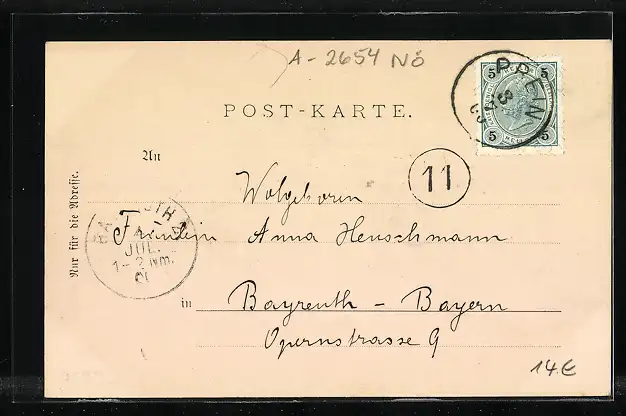 A-2654 NÖ
PREIN
5 5
5 5
POST-KARTE.
An
11
Wolgeboren
Nur für die Adresse.
Fräulein Anna Henschmann
JUL.
1-2 Nm.
01
in
Bayreuth - Bayern
Opernstrasse 9
14€